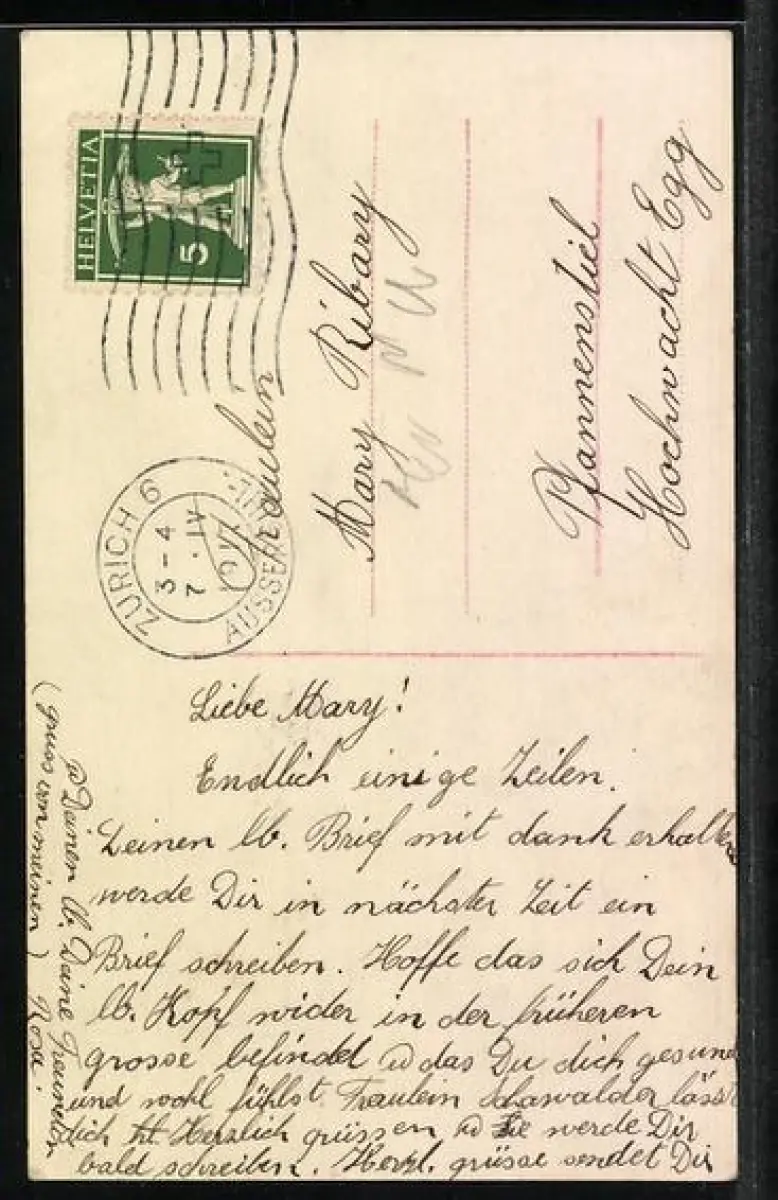 HELVETIA
5
ZÜRICH 6
3-4
7.IV
AUSSERSIHL
Fräulein
Mary Ribary
Pfannenstiel
Hochwacht Egg
Liebe Mary!
Endlich einige Zeilen.
Deinen lb. Brief mit dank erhalten
werde Dir in nächster Zeit ein
Brief schreiben. Hoffe das sich Dein
lb. Kopf wider in der früheren
grosse befindet u das Du dich gesund
und wohl fühlst Fraulein Schawalder lässt
dich Herzlich grüssen u Sie werde Dir
bald schreiben. Herzl. grüsse sendet Dir
u Deinen lb. Deine Freundin
(gruss von meinen) Rosa.